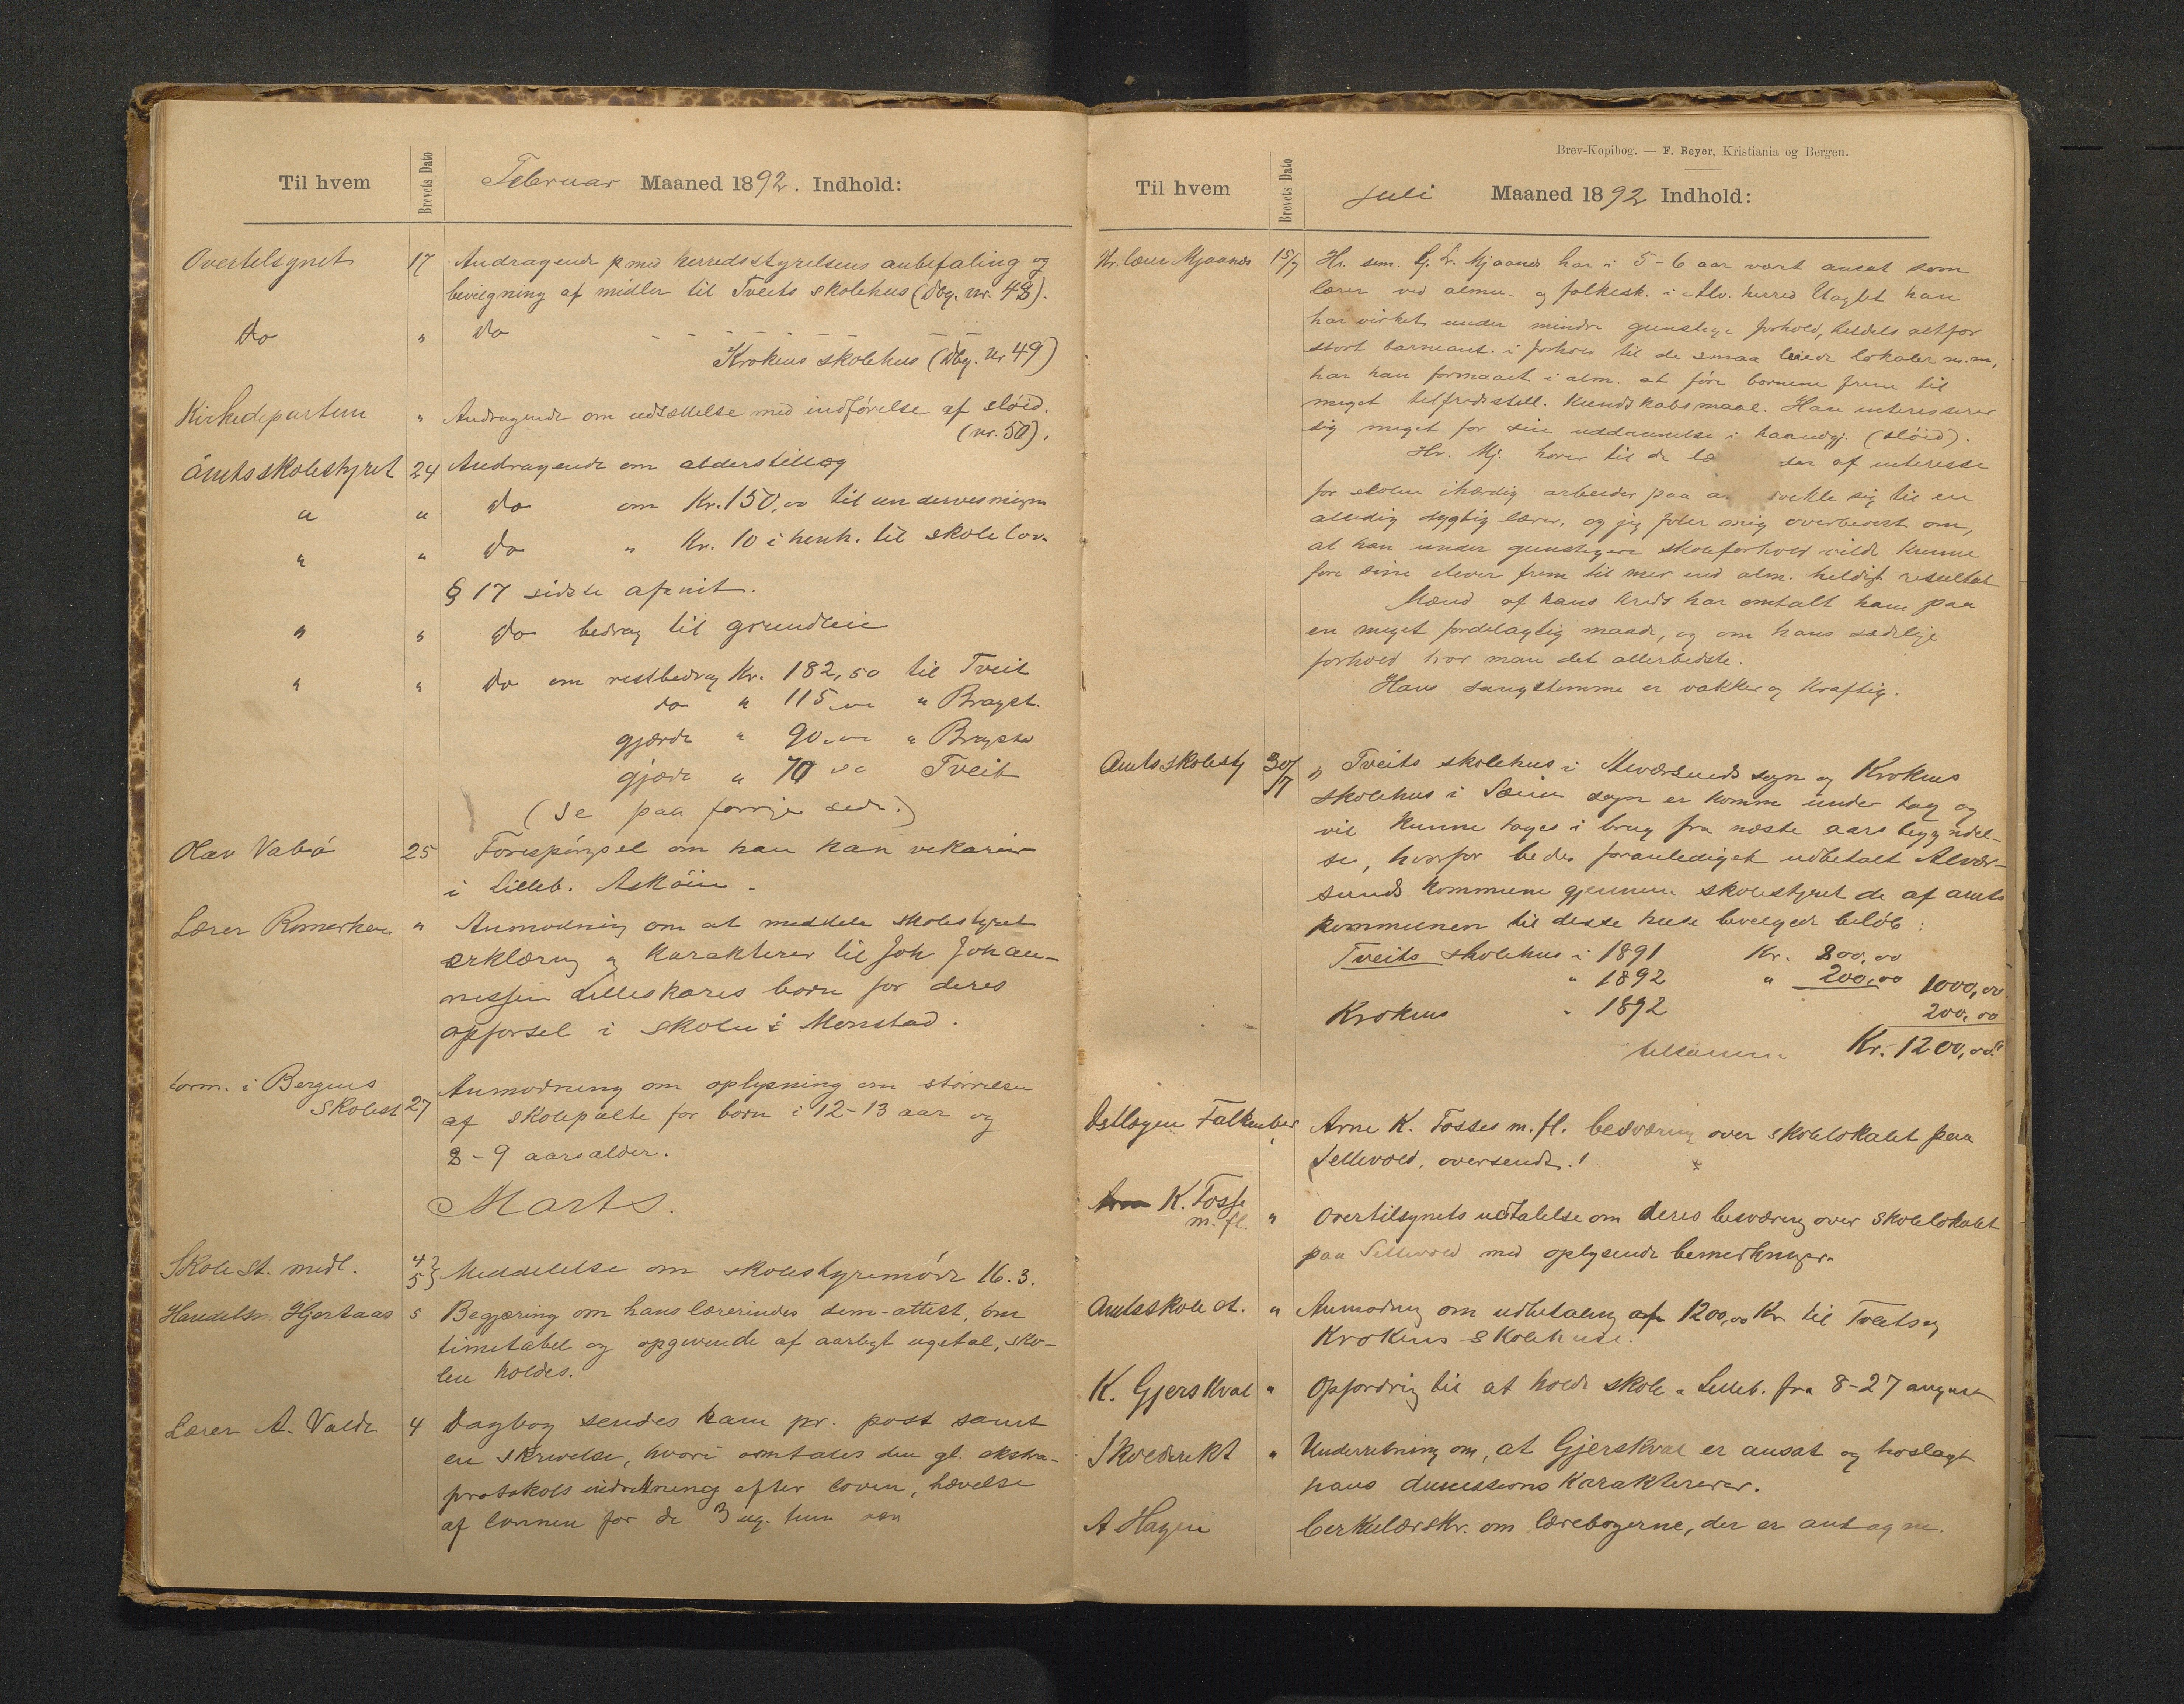 Til hvem
Brevets Dato
Februar Maaned 1892. Indhold:
Overtilsynet 17 Andragende med herredsstyrelsens anbefaling og
bevilgning af midler til Tveits skolehus (Dbg. nr. 48).
Do " Do - - - - - - -
Krokens skolehus (Dbg. Nr 49)
Kirkedepartem " Andragende om udsættelse med indførelse af sløid.
(nr. 50).
Amtsskolestyret 24 Andragende om alderstillæg
" " Do om Kr. 150,00 til undervisnigen
" " Do " Kr. 10 i henh. til skolelov.
§ 17 sidste afsnit.
" " Do bedrag til grundleie
" " Do om restbedrag Kr. 182,50 til Tveit
do " 115,00 " Bragst.
gjærde " 90,00 " Bragstad
gjærde " 70 Tveit
(Se paa forrige side.)
Olav Vabø 25 Forespørgsel om han kan vikariere
i Lilleb. Askøin.
Lærer Romarheim " Anmodning om at meddele skolestyret
erklæring og karakterer til Joh. Johan-
nessen Lilleskares børn for deres
opførsel i skolen i Monstad.
form. i Bergens
Skolest 27 Anmodning om oplysning om størrelsen
af skolepulte for børn i 12-13 aar og
8-9 aarsalder.
Marts.
Skolest. medl. 4 5 Meddelelse om skolestyremøde 16.3.
Handelsm. Hjertaas 5 Begjæring om hans lærerindes sem-attest, om
timetabel og opgivende af aarligt ugetal, sko-
len holdes.
Lærer A. Valde 4 Dagbog sendes ham pr. post samt
en skrivelse, hvori omtales den gl. ekstra-
protokols indretning efter loven, hævelse
af lønnen for de 3 ug.
Brev-Kopibog. — F. Beyer, Kristiania og Bergen.
Til hvem
Brevets Dato
Juli Maaned 1892 Indhold:
Hr. lærer Mjaanes 15/7 Hr. sem. L. Mjaanes har i 5-6 aar vært ansat som
lærer ved almu- og folkesk. i Alv. herred Uagtet han
har virket under mindre gunstige forhold, heldels altfor
stort barneant. i forhold til de smaa leiede lokaler m.m,
har han formaaet i alm. at føre børnene frem til
meget tilfredsstill. kundskabsmaal. Han interesserer
sig meget for sin uddannelse i haandgj. (sløid).
Hr. Mj. hører til de læ ser af interesse
for skolen ihærdig arbeider paa a vikle sig til en
alsidig dygtig lærer, og jeg føler mig overbevist om,
at han under gunstigere skoleforhold vilde kunne
føre sine elever frem til mer end alm. heldigt resultat
Mænd af hans kreds har omtalt ham paa
en meget fordelagtig maade, og om hans sædelige
forhold tror man det allerbedste.
Hans sangstemme er vakker og kraftig.
Amtsskolesty 30/7 Tveits skolehus i Alværsunds sogn og Krokens
skolehus i Sæim sogn er komne under tag og
vil kunne tages i brug fra næste aars begyndel-
se, hvorfor bedes foranlediget udbetalt Alvær-
sunds kommune gjennem skolestyret de af amts
kommunen til disse huse bevilgede beløb:
Tveits skolehus i 1891 Kr. 800,00
" 1892 " 200,00 1000,00
Krokens " 1892 200,00
tilsammen Kr. 1200,00
Dstlægen Falkenber " Arne K. Fosses m.fl. besværing over skolelokalet paa
Sellevold, oversendt.!
Arne K. Fosse
m. fl. " Overtilsynets udtalelse om deres besværing over skolelokalet
paa Sellevold med oplysende bemerkninger.
Amtsskolest. " Anmodning om udbetaling af 1200,00 Kr. til Tveits og
Krokens skolehuse.
K. Gjerskval " Opfordrig til at holde skole i Lilleb. fra 8-27 august
Skoledirekt " Underretning om, at Gjerskval er ansat og hoslagt
hans dimissionskarakterer.
A Hagen Cerkulærskr. om lærebøgerne, der er antagne.